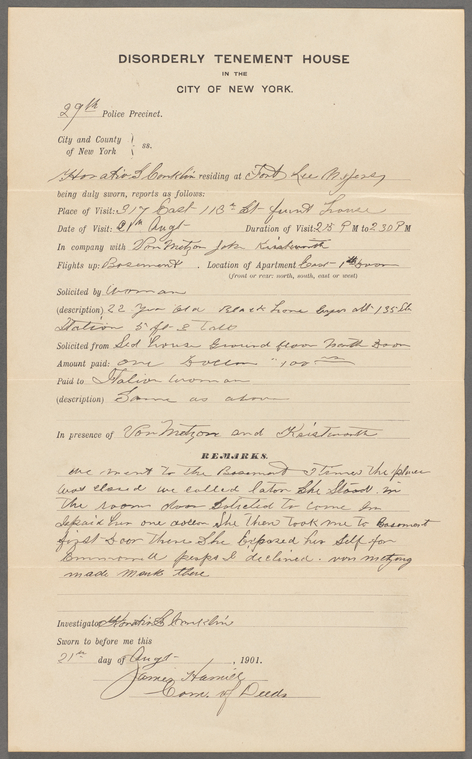 DISORDERLY TENEMENT HOUSE
IN THE
CITY OF NEW YORK.
29th Police Precinct.
City and County
of New York } ss.
Horatio S Conklin residing at Fort Lee N Jersey
being duly sworn, reports as follows:
Place of Visit: 317 East 113th St front house
Date of Visit: 21th Augt Duration of Visit: 2 15 P M to 2 30 P M
In company with Von Metzon John
Flights up: Basement. Location of Apartment East 1st Door
(front or rear: north, south, east or west)
Solicited by Woman
(description) 22 Year Old Black hair Eyes abt 135 lb
Italian 5 ft 2 Tall
Solicited from Sed house Ground floor North Door
Amount paid: one Dollar "1 00
Paid to Italian woman
(description) Same as above
In presence of Von Metzon and
REMARKS.
we went to the Basement the place
was closed we called later She Stood in
the room door Solicited to come In
I paid her one dollar She then took me to Basement
first Door there She Exposed her Self for
perpos I declined. von metzong
made mark there
Investigator Horatio S Conklin
Sworn to before me this
21st day of Augt, 1901.
James Hamill
Com. of Deeds